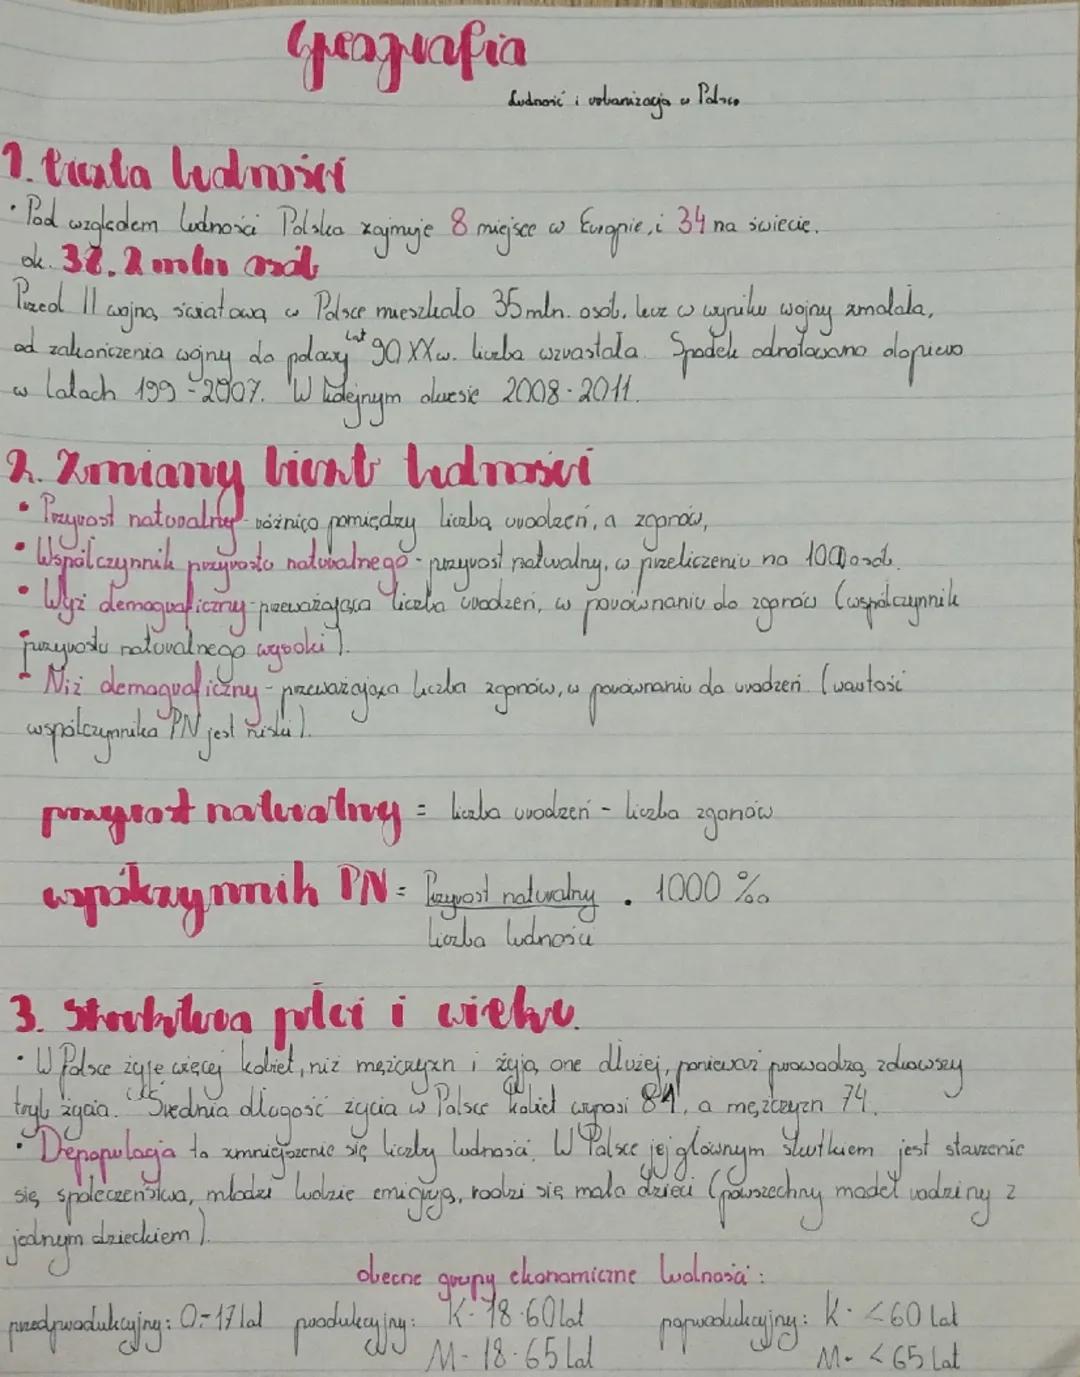 Geografia
Ludność i urbanizacja w Polsce
1. Liczba ludności
• Pod względem ludności Polska zajmuje 8 miejsce w Europie, i 34 na świecie.
ok. 38.2 mln osób
Przed II wojną światową w Polsce mieszkało 35 mln. osób, lecz w wyniku wojny zmalała,
od zakończenia wojny do połowy lat 90 XXw. liczba wzrastała. Spadek odnotowano dopiero
w latach 199 - 2007. W kolejnym okresie 2008 - 2011.
2. Zmiany liczb ludności
• Przyrost naturalny - różnica pomiędzy liczbą urodzeń, a zgonów,
• Współczynnik przyrostu naturalnego - przyrost naturalny, w przeliczeniu na 1000 osób.
• Wyż demograficzny - przeważająca liczba urodzeń, w porównaniu do zgonów (współczynnik
przyrostu naturalnego wysoki).
• Niż demograficzny - przeważająca liczba zgonów, w porównaniu do urodzeń. (wartość
współczynnika PN jest niski).
przyrost naturalny = liczba urodzeń - liczba zgonów
współczynnik PN = Przyrost naturalny . 1000 ‰
liczba ludności
3. Struktura płci i wieku.
• W Polsce żyje więcej kobiet, niż mężczyzn i żyją one dłużej, ponieważ prowadzą zdrowszy
tryb życia. Średnia długość życia w Polsce kobiet wynosi 81, a mężczyzn 74.
• Depopulacja to zmniejszenie się liczby ludności. W Polsce jej głównym skutkiem jest starzenie
się społeczeństwa, młodzi ludzie emigrują, rodzi się mało dzieci (powszechny model rodziny z
jednym dzieckiem).
obecne grupy ekonomiczne ludności:
przedprodukcyjny: 0-17 lat produkcyjny: K - 18-60 lat poprodukcyjny: K - <60 lat
M - 18-65 lat M - <65 lat